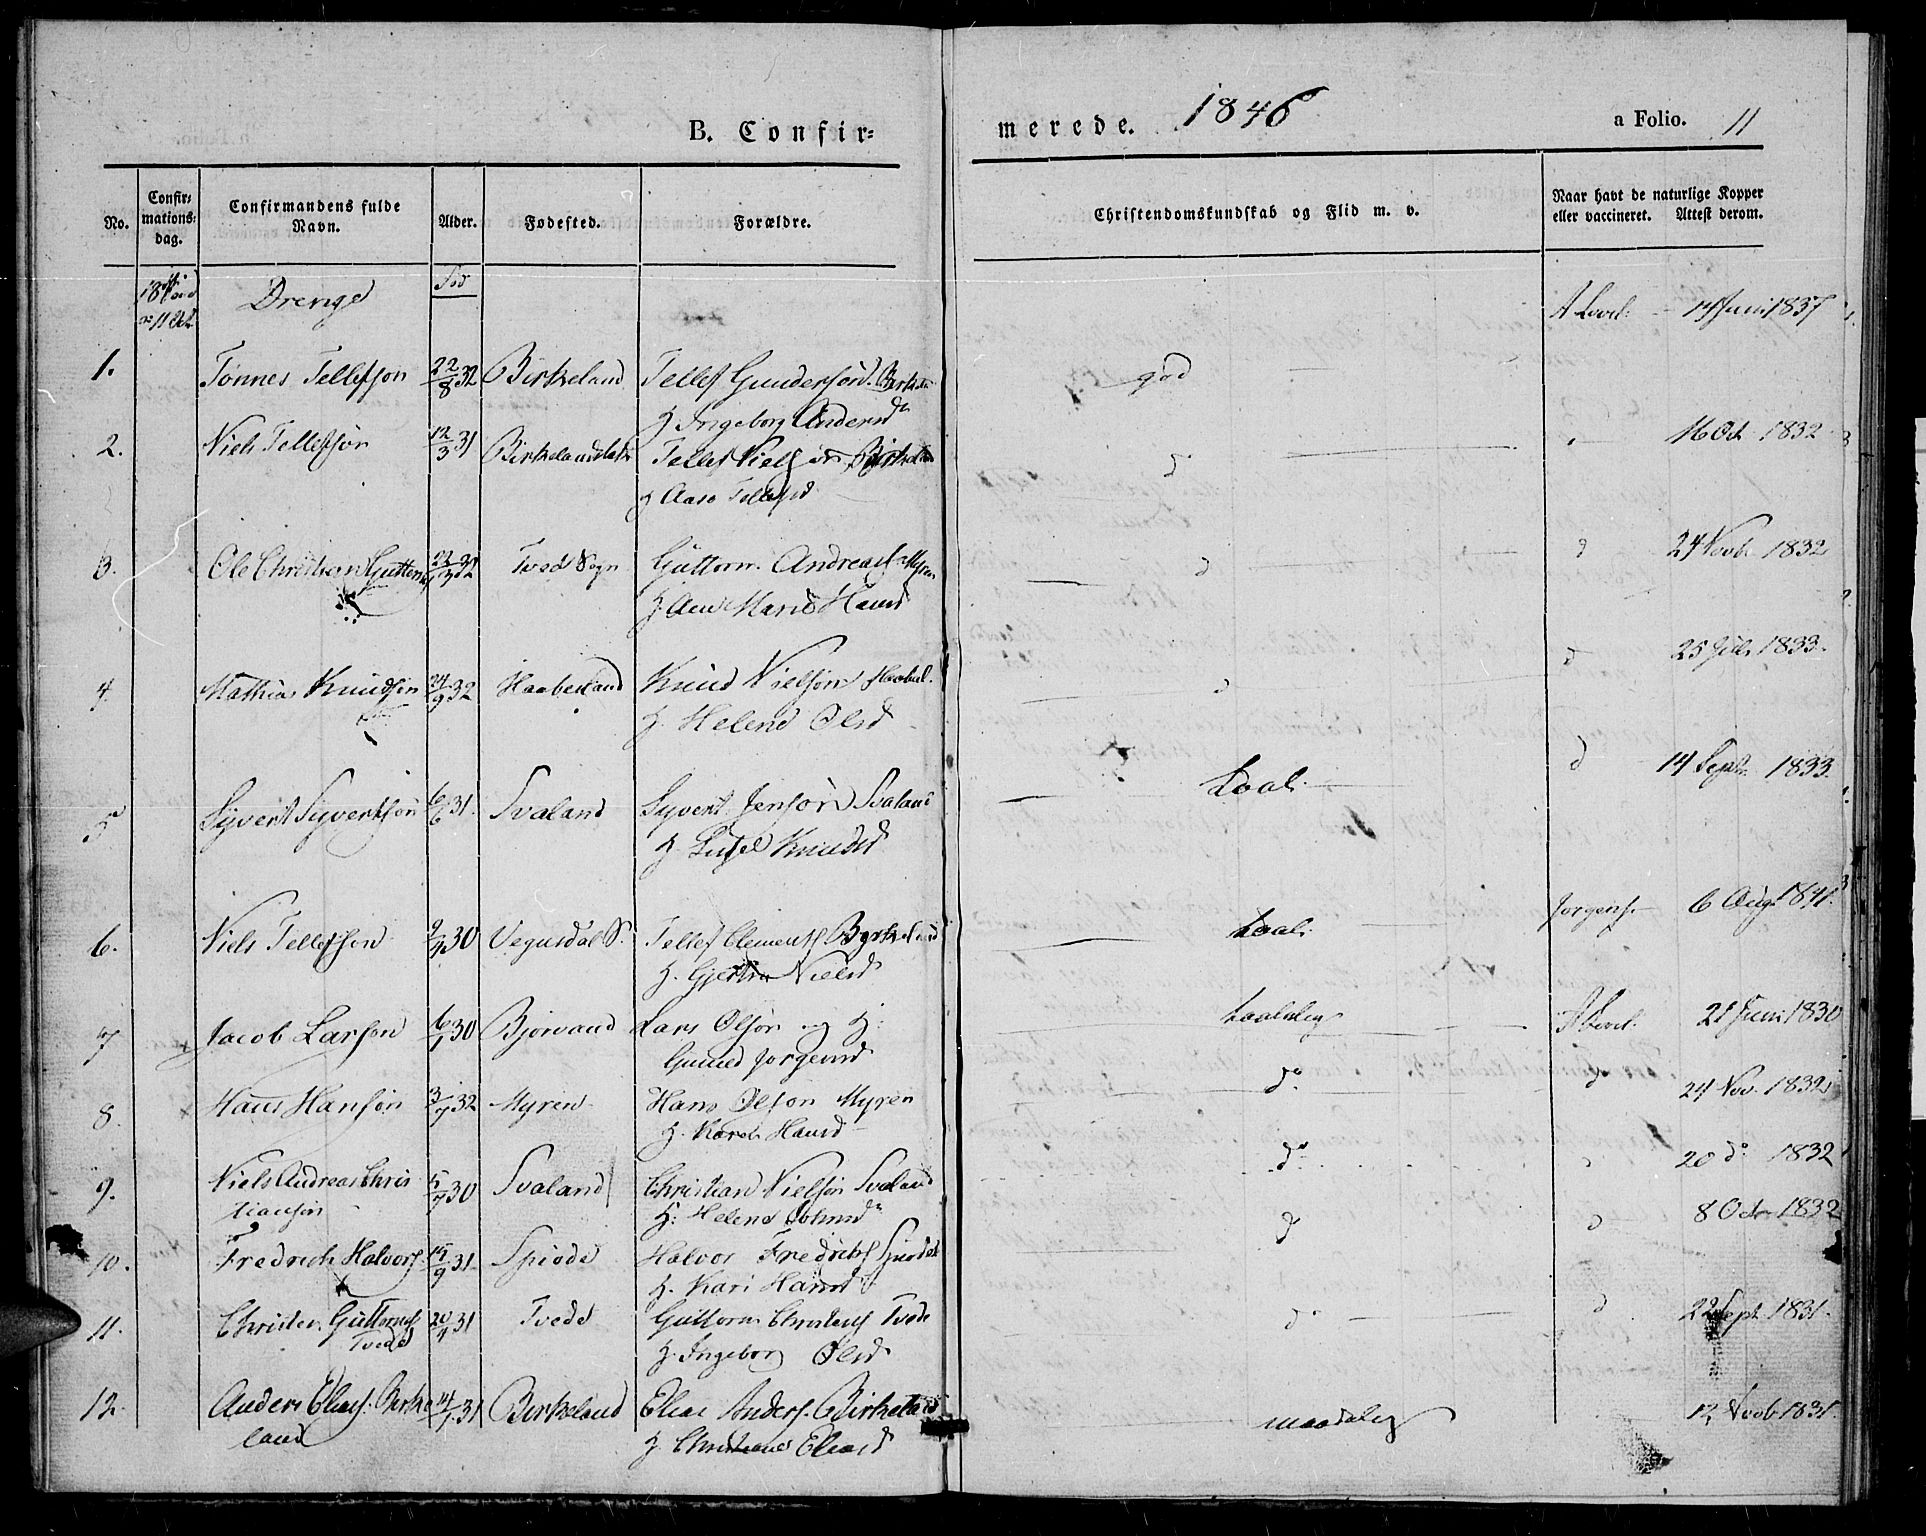 B. Confir=
merede. 1846
a Folio. 11
No.
Confir=
mations=
dag.
Confirmandens fulde
Navn.
Alder.
Fødested.
Forældre.
Christendomskundskab og Flid m. v.
Naar havt de naturlige Kopper
eller vaccineret. Attest derom.
Drenge
Fød
1. Tønnes Tellefsøn 22/8 32 Birkeland Tellef Gundersøn
H Ingeborg Andersd
god 14 Juni 1837
2. Niels Tellefsøn 12/3 31 Tellef Nielsøn
H Aase Tellefsd
d 16 Oct 1832
3. Ole Christian Guttorms Tved Sogn Guttorm Andreass Myren
H. Ane Marie Hansd
d d 24 Novb. 1832
4. Mathias Knudsøn 24/9 32 Haaberland Knud Nielsøn
H. Helene Olsd
d d 25 1833.
5 Syvert Syvertsøn 6/6 31. Svaland Syvert Jensøn Svaland
H. Knudsd
d 14 Septr. 1833.
6. Niels Tellefsøn 30 Vegusdal S. Tellef Clements Byrkeland
H. Nielsd
Jørgens. 6 Aug. 1841.
7 Jacob Larsøn 6/1 30 Bjorvand Lars Olsøn og H:
Gunild Jorgensd
21 Juni 1830
8. Hans Hansøn 3/7 32 Myren Hans Olsøn Myren
H. Karen Hansd
do d 24 Nov. 1832
9. Niels Andreas Chris
tiansøn 5/7 30 Svaland Christian Nielsøn Svaland
H: Helene
do 20 do 1832
10. Fredrich Halvors. 15/9 31 Spiode Halvor Fredriks Spiode
H. Kari Hansd
d d 8 Oct 1832
11. Christen Guttorms
Tvede 31 Tvede Guttorm Christens Tvede
H. Ingeborg Olsd
do d 22 Sept 1831.
12. Anders Elias. Birke
land 31 Birkeland Elias Anders. Birkeland
H Christiane Eliasd
maadelig 12 Novb 1831.